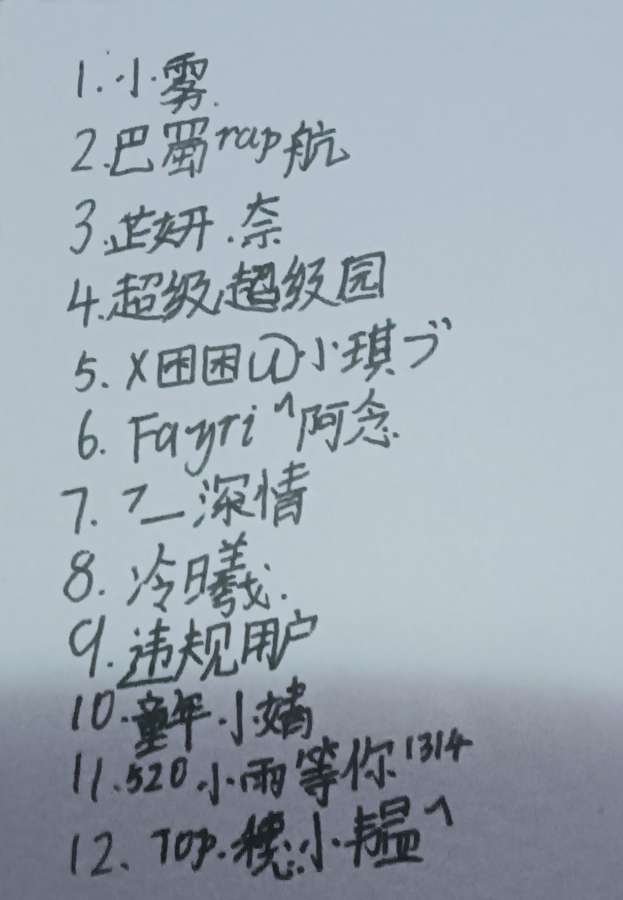 1.小雾.
2.巴蜀rap航
3.芷妍.奈
4.超级超级园
5.X困困山小琪づ
6.Fayri^阿念.
7.乛_深情
8.冷曦.
9.违规用户
10.童年.小婧
11.520小雨等你1314
12.TOP.穗小韫^